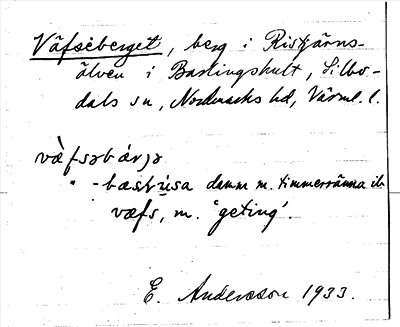 Väfseberget, berg i Ristjärns-
älven i Barlingshult, Silbo-
dals sn, Nordmarks hd, Värml. l.
vàfsəbárjə
" -bæstùsa damm m. timmerränna ib
væfs, m. 'geting'.
E. Andersson 1933.